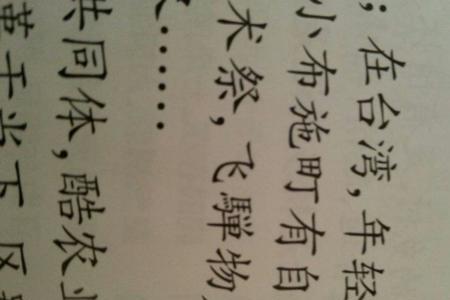 ；在台湾，年轻
小布施町有自
术祭，飞驒物
……
共同体，酷农业
当下 区